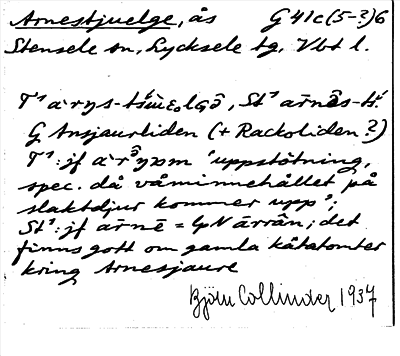 Arnestjuelge, ås G 41c(5-?)6
Stensele sn, Lycksele tg, Vbt l.
G Ansjaurliden (+ Rackoliden?)
T¹: jf 'uppstötning,
spec. då våminnehållet på
slaktdjur kommer upp';
St¹: jf arnē = lpN árrân; det
finns gott om gamla kåtatomter
kring Arnesjaure
Björn Collinder 1937